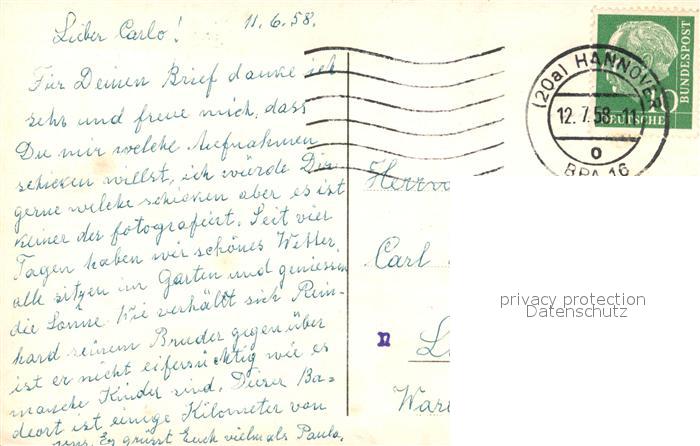 Lieber Carlo! 11.6.58.
Für Deinen Brief danke ich
sehr und freue mich, dass
Du mir welche Aufnahmen
schicken willst, ich würde Dir
gerne welche schicken aber es ist
keiner der fotografiert. Seit vier
Tagen haben wir schönes Wetter
alle sitzen im Garten und geniessen
die Sonne. Wie verhält sich Rein-
hard seinem Bruder gegenüber
ist er nicht eifersüchtig wie es
manche Kinder sind. Dieser Ba-
deort ist einige Kilometer von
uns. Es grüsst Euch vielmals Paula.
DEUTSCHE
BUNDESPOST
10
(20a) HANNOVER
12.7.58-11
o
BPA 16
Herrn
Carl
n
War
privacy protection
Datenschutz